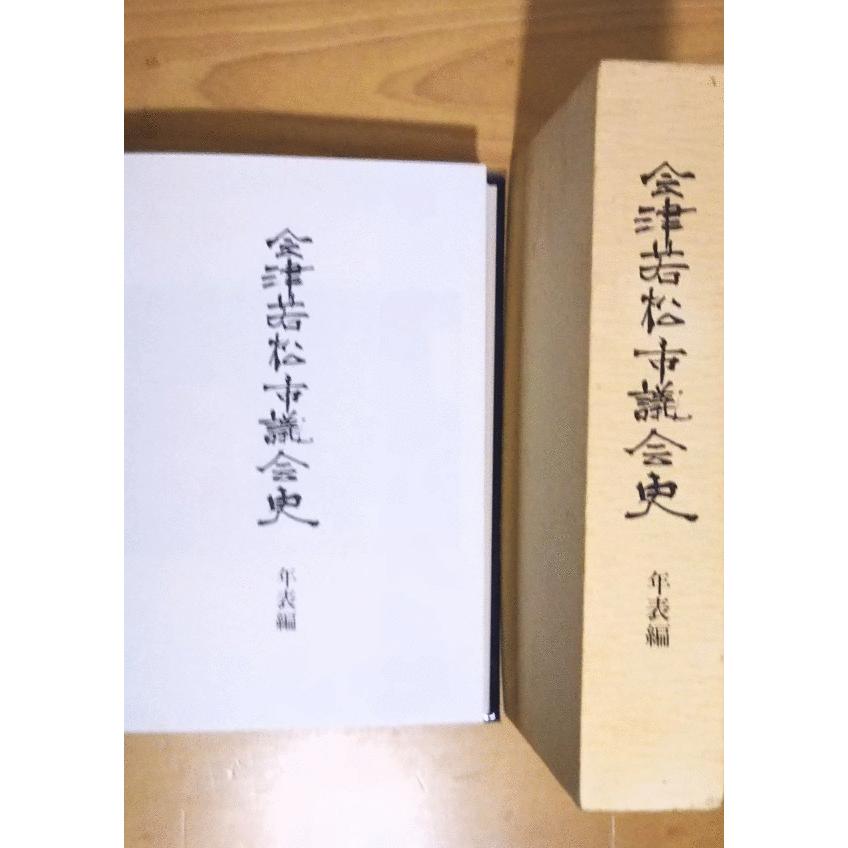 会津若松市議会史
年表編
会津若松市議会史
年表編